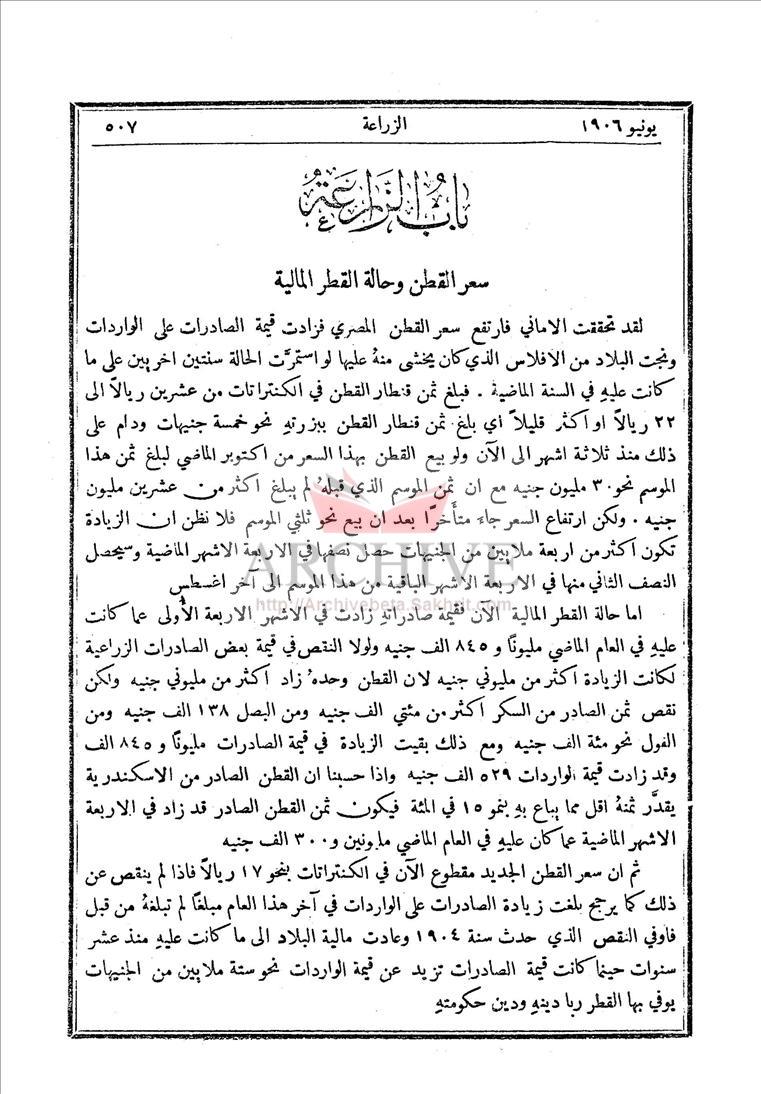 يونيو ١٩٠٦ الزراعة ٥٠٧
باب الزراعة
سعر القطن وحالة القطر المالية
لقد تحققت الاماني فارتفع سعر القطن المصري فزادت قيمة الصادرات على الواردات
ونجت البلاد من الافلاس الذي كان يخشى منهُ عليها لو استمرَّت الحالة سنتين اخريين على ما
كانت عليهِ في السنة الماضية . فبلغ ثمن قنطار القطن في الكنتراتات من عشرين ريالاً الى
٢٢ ريالاً او اكثر قليلاً اي بلغ ثمن قنطار القطن ببزرتهِ نحو خمسة جنيهات ودام على
ذلك منذ ثلاثة اشهر الى الآن ولو بيع القطن بهذا السعر من اكتوبر الماضي لبلغ ثمن هذا
الموسم نحو ٣٠ مليون جنيه مع ان ثمن الموسم الذي قبلهُ لم يبلغ اكثر من عشرين مليون
جنيه . ولكن ارتفاع السعر جاء متأخرًا بعد ان بيع نحو ثلثي الموسم فلا نظن ان الزيادة
تكون اكثر من اربعة ملايين من الجنيهات حصل نصفها في الاربعة الاشهر الماضية وسيحصل
النصف الثاني منها في الاربعة الاشهر الباقية من هذا الموسم الى آخر اغسطس
ARCHIVE
http://Archivebeta.Sakhrit.com
اما حالة القطر المالية الآن فقيمة صادراتهِ زادت في الاشهر الاربعة الأُولى عما كانت
عليهِ في العام الماضي مليونًا و ٨٤٥ الف جنيه ولولا النقص في قيمة بعض الصادرات الزراعية
لكانت الزيادة اكثر من مليوني جنيه لان القطن وحدهُ زاد اكثر من مليوني جنيه ولكن
نقص ثمن الصادر من السكر اكثر من مئتي الف جنيه ومن البصل ١٣٨ الف جنيه ومن
الفول نحو مئة الف جنيه ومع ذلك بقيت الزيادة في قيمة الصادرات مليونًا و ٨٤٥ الف
وقد زادت قيمة الواردات ٥٢٩ الف جنيه واذا حسبنا ان القطن الصادر من الاسكندرية
يقدَّر ثمنهُ اقل مما يباع بهِ بنحو ١٥ في المئة فيكون ثمن القطن الصادر قد زاد في الاربعة
الاشهر الماضية عما كان عليهِ في العام الماضي مليونين و ٣٠٠ الف جنيه
ثم ان سعر القطن الجديد مقطوع الآن في الكنتراتات بنحو ١٧ ريالاً فاذا لم ينقص عن
ذلك كما يرجح بلغت زيادة الصادرات على الواردات في آخر هذا العام مبلغًا لم تبلغهُ من قبل
فاوفي النقص الذي حدث سنة ١٩٠٤ وعادت مالية البلاد الى ما كانت عليهِ منذ عشر
سنوات حينما كانت قيمة الصادرات تزيد عن قيمة الواردات نحو ستة ملايين من الجنيهات
يوفي بها القطر ربا دينهِ ودين حكومتهِ